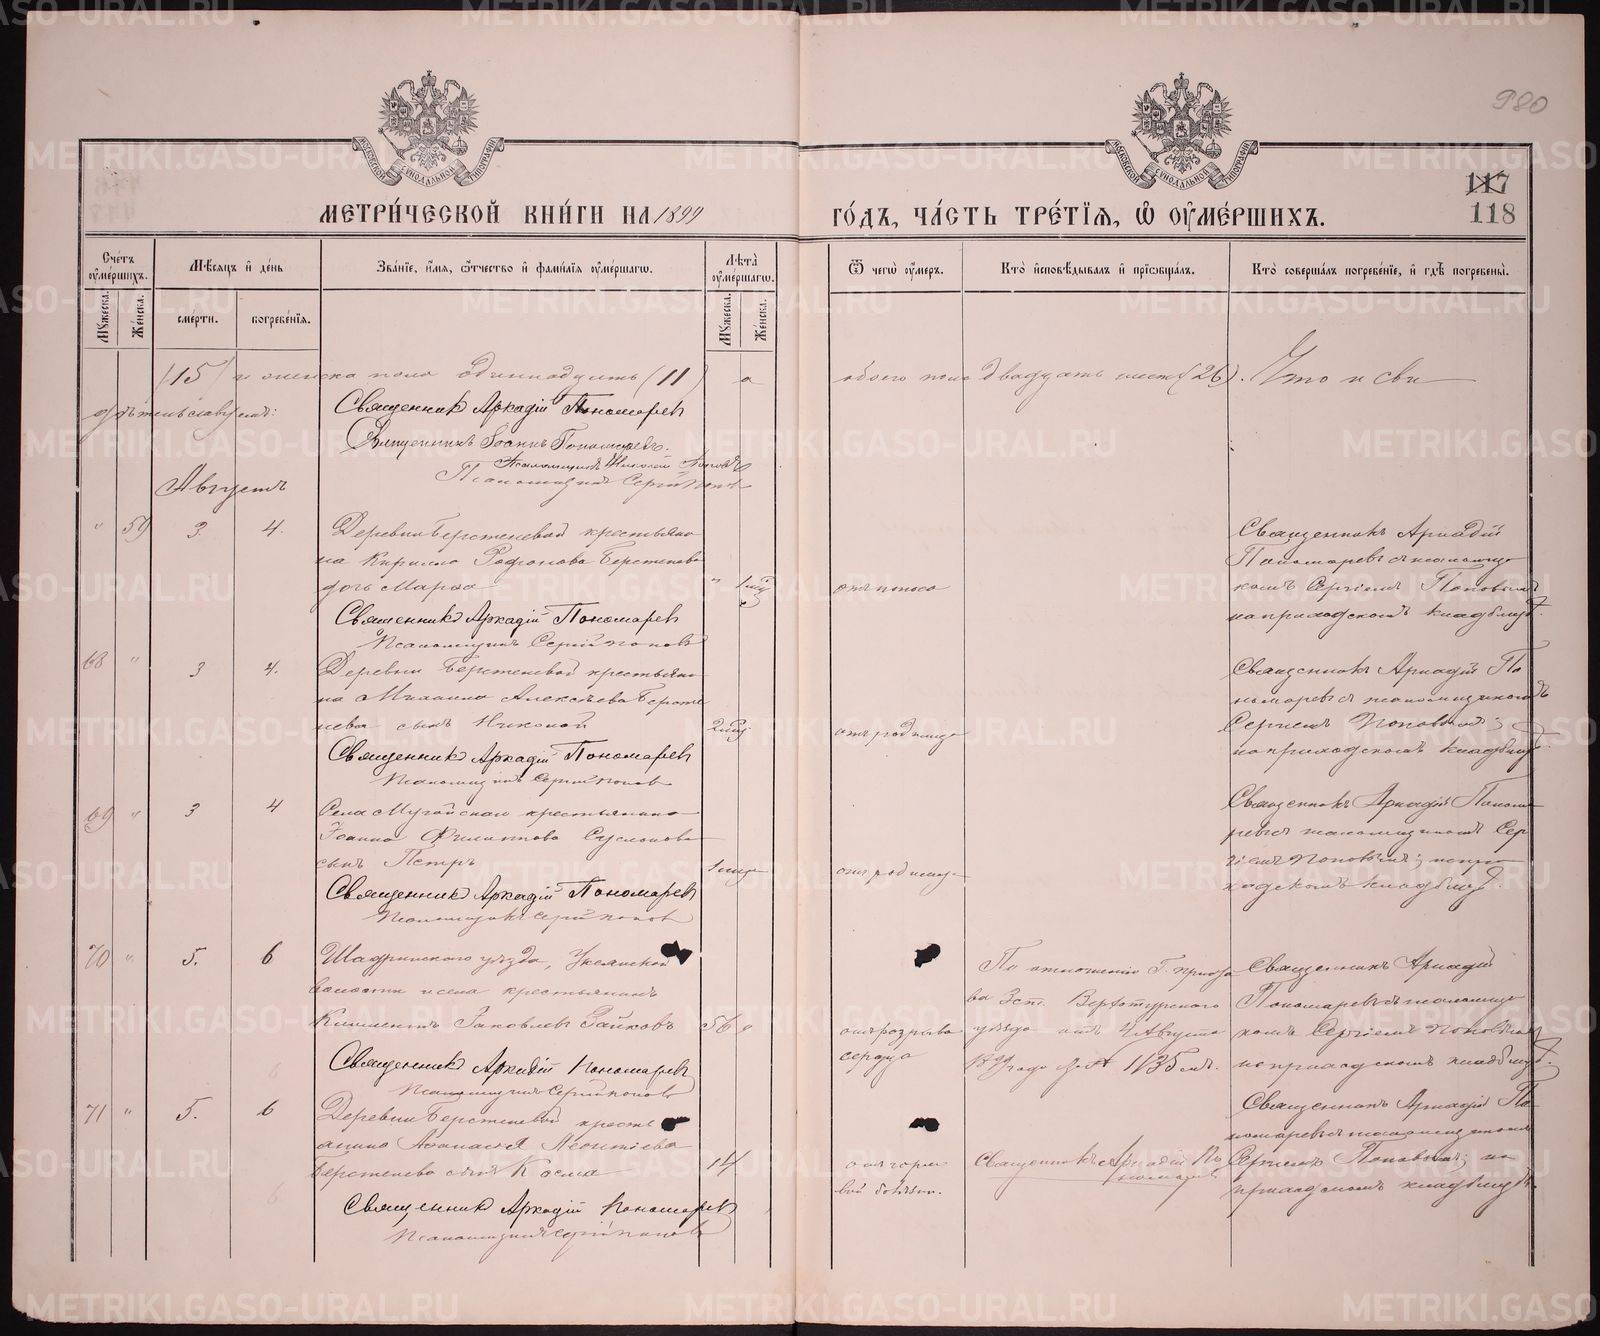 980
117
118
МОСКОВСКОЙ СѴНОДАЛЬНОЙ ТИПОГРАФІИ
МОСКОВСКОЙ СѴНОДАЛЬНОЙ ТИПОГРАФІИ
МЕТРИ́ЧЕСКОЙ КНИ́ГИ НА 1899 ГО́ДЪ, ЧА́СТЬ ТРЕ́ТІѦ, Ѽ ОУ҆МЕ́РШИХЪ.
Сче́тъ оу҆ме́ршихъ.
Мꙋжеска.
Же́нска.
Мѣ́сѧцъ и҆ де́нь
сме́рти.
погребе́нїѧ.
Зва́нїе, и҆́мѧ, ѻ҆́тчество и҆ фами́лїѧ оу҆ме́ршагѡ.
Лѣ́та оу҆ме́ршагѡ.
Мꙋжеска.
Же́нска.
Ѿ чегѡ̀ оу҆́меръ.
Кто̀ и҆сповѣ́дывалъ и҆ прїѻбща́лъ.
Кто̀ соверша́лъ погребе́нїе, и҆ гдѣ̀ погребены̀.
(15) и женска пола одиннадцать (11) а обоего пола двадцать шесть (26). Что и сви
дѣтельствуемъ:
Священникъ Аркадій Пономаревъ
Священникъ Іоаннъ Пономаревъ.
Псаломщикъ Николай Поповъ
Псаломщикъ Сергій Поповъ
Августъ
" 59 3. 4.
Деревни Берстеневой крестьяни
на Кирилла Берстенева
дочь Марѳа " 1 мѣс
отъ поноса
Священникъ Аркадій
Пономаревъ съ псаломщи
комъ Сергіемъ Поповымъ
на приходскомъ кладбищѣ.
Священникъ Аркадій Пономаревъ
Псаломщикъ Сергій Поповъ
68 " 3 4.
Деревни Берстеневой крестьяни
на Михаила Алексѣева Берсте
нева сынъ Николай 2 мѣс.
отъ родимца
Священникъ Аркадій По
номаревъ съ псаломщикомъ
Сергіемъ Поповымъ;
на приходскомъ кладбищѣ.
Священникъ Аркадій Пономаревъ
Псаломщикъ Сергій Поповъ
69 " 3 4
Села Мугайскаго крестьянина
Іоанна Филиппова Суслонова
сынъ Петръ 1 мѣс
отъ родимца
Священникъ Аркадій Понома
ревъ съ псаломщикомъ Сер
гіемъ Поповымъ; на при
ходскомъ кладбищѣ.
Священникъ Аркадій Пономаревъ
Псаломщикъ Сергій Поповъ
70 " 5. 6
Шадринскаго уѣзда, Уксянской
волости и села крестьянинъ
Климентъ Іаковлевъ Зайковъ 56
отъ разрыва
сердца
По отношенію Г. приста
ва 3 ст. Верхотурскаго
уѣзда отъ 4 Августа
1899 года за № 1135 емъ.
Священникъ Аркадій
Пономаревъ съ псаломщи
комъ Сергіемъ Поповымъ
на приходскомъ кладбищѣ.
Священникъ Аркадій Пономаревъ
Псаломщикъ Сергій Поповъ
71 " 5. 6
Деревни Берстеневой кресть
янина Аѳанасія Леонтіева
Берстенева сынъ Косма 14
отъ горяче
вой болѣзни.
Священникъ Аркадій По
номаревъ
Священникъ Аркадій По
номаревъ съ псаломщикомъ
Сергіемъ Поповымъ; на
приходскомъ кладбищѣ.
Священникъ Аркадій Пономаревъ
Псаломщикъ Сергій Поповъ
METRIKI.GASO-URAL.RU